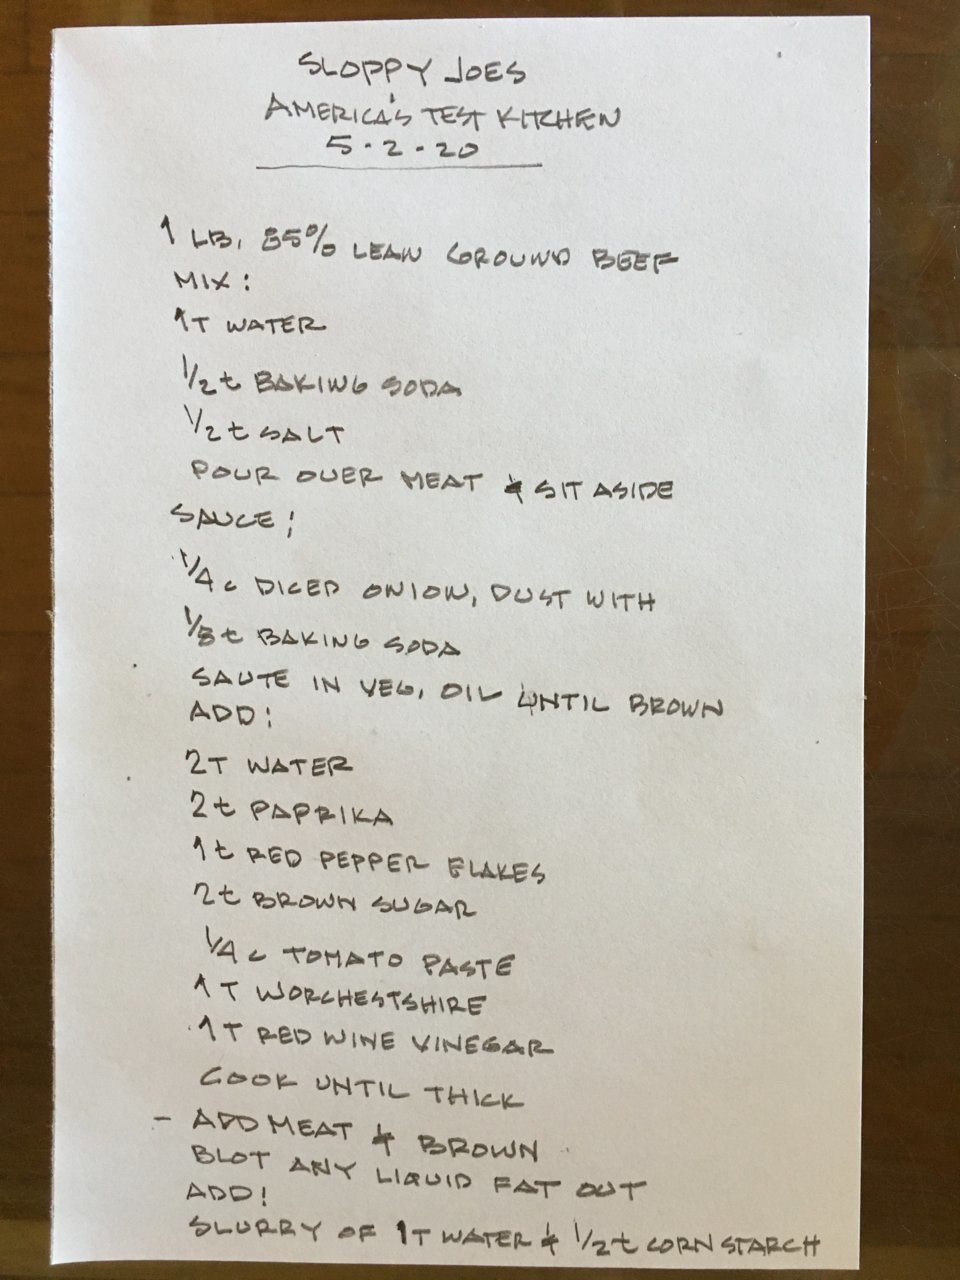 SLOPPY JOES
AMERICA'S TEST KITCHEN
5.2.20
1 LB. 85% LEAN GROUND BEEF
MIX:
1T WATER
1/2 t BAKING SODA
1/2 t SALT
POUR OVER MEAT & SIT ASIDE
SAUCE:
1/4 c DICED ONION, DUST WITH
1/8 t BAKING SODA
SAUTE IN VEG. OIL UNTIL BROWN
ADD:
2T WATER
2t PAPRIKA
1t RED PEPPER FLAKES
2t BROWN SUGAR
1/4 c TOMATO PASTE
1T WORCHESTSHIRE
1T RED WINE VINEGAR
COOK UNTIL THICK
- ADD MEAT & BROWN
BLOT ANY LIQUID FAT OUT
ADD:
SLURRY OF 1T WATER & 1/2 t CORN STARCH